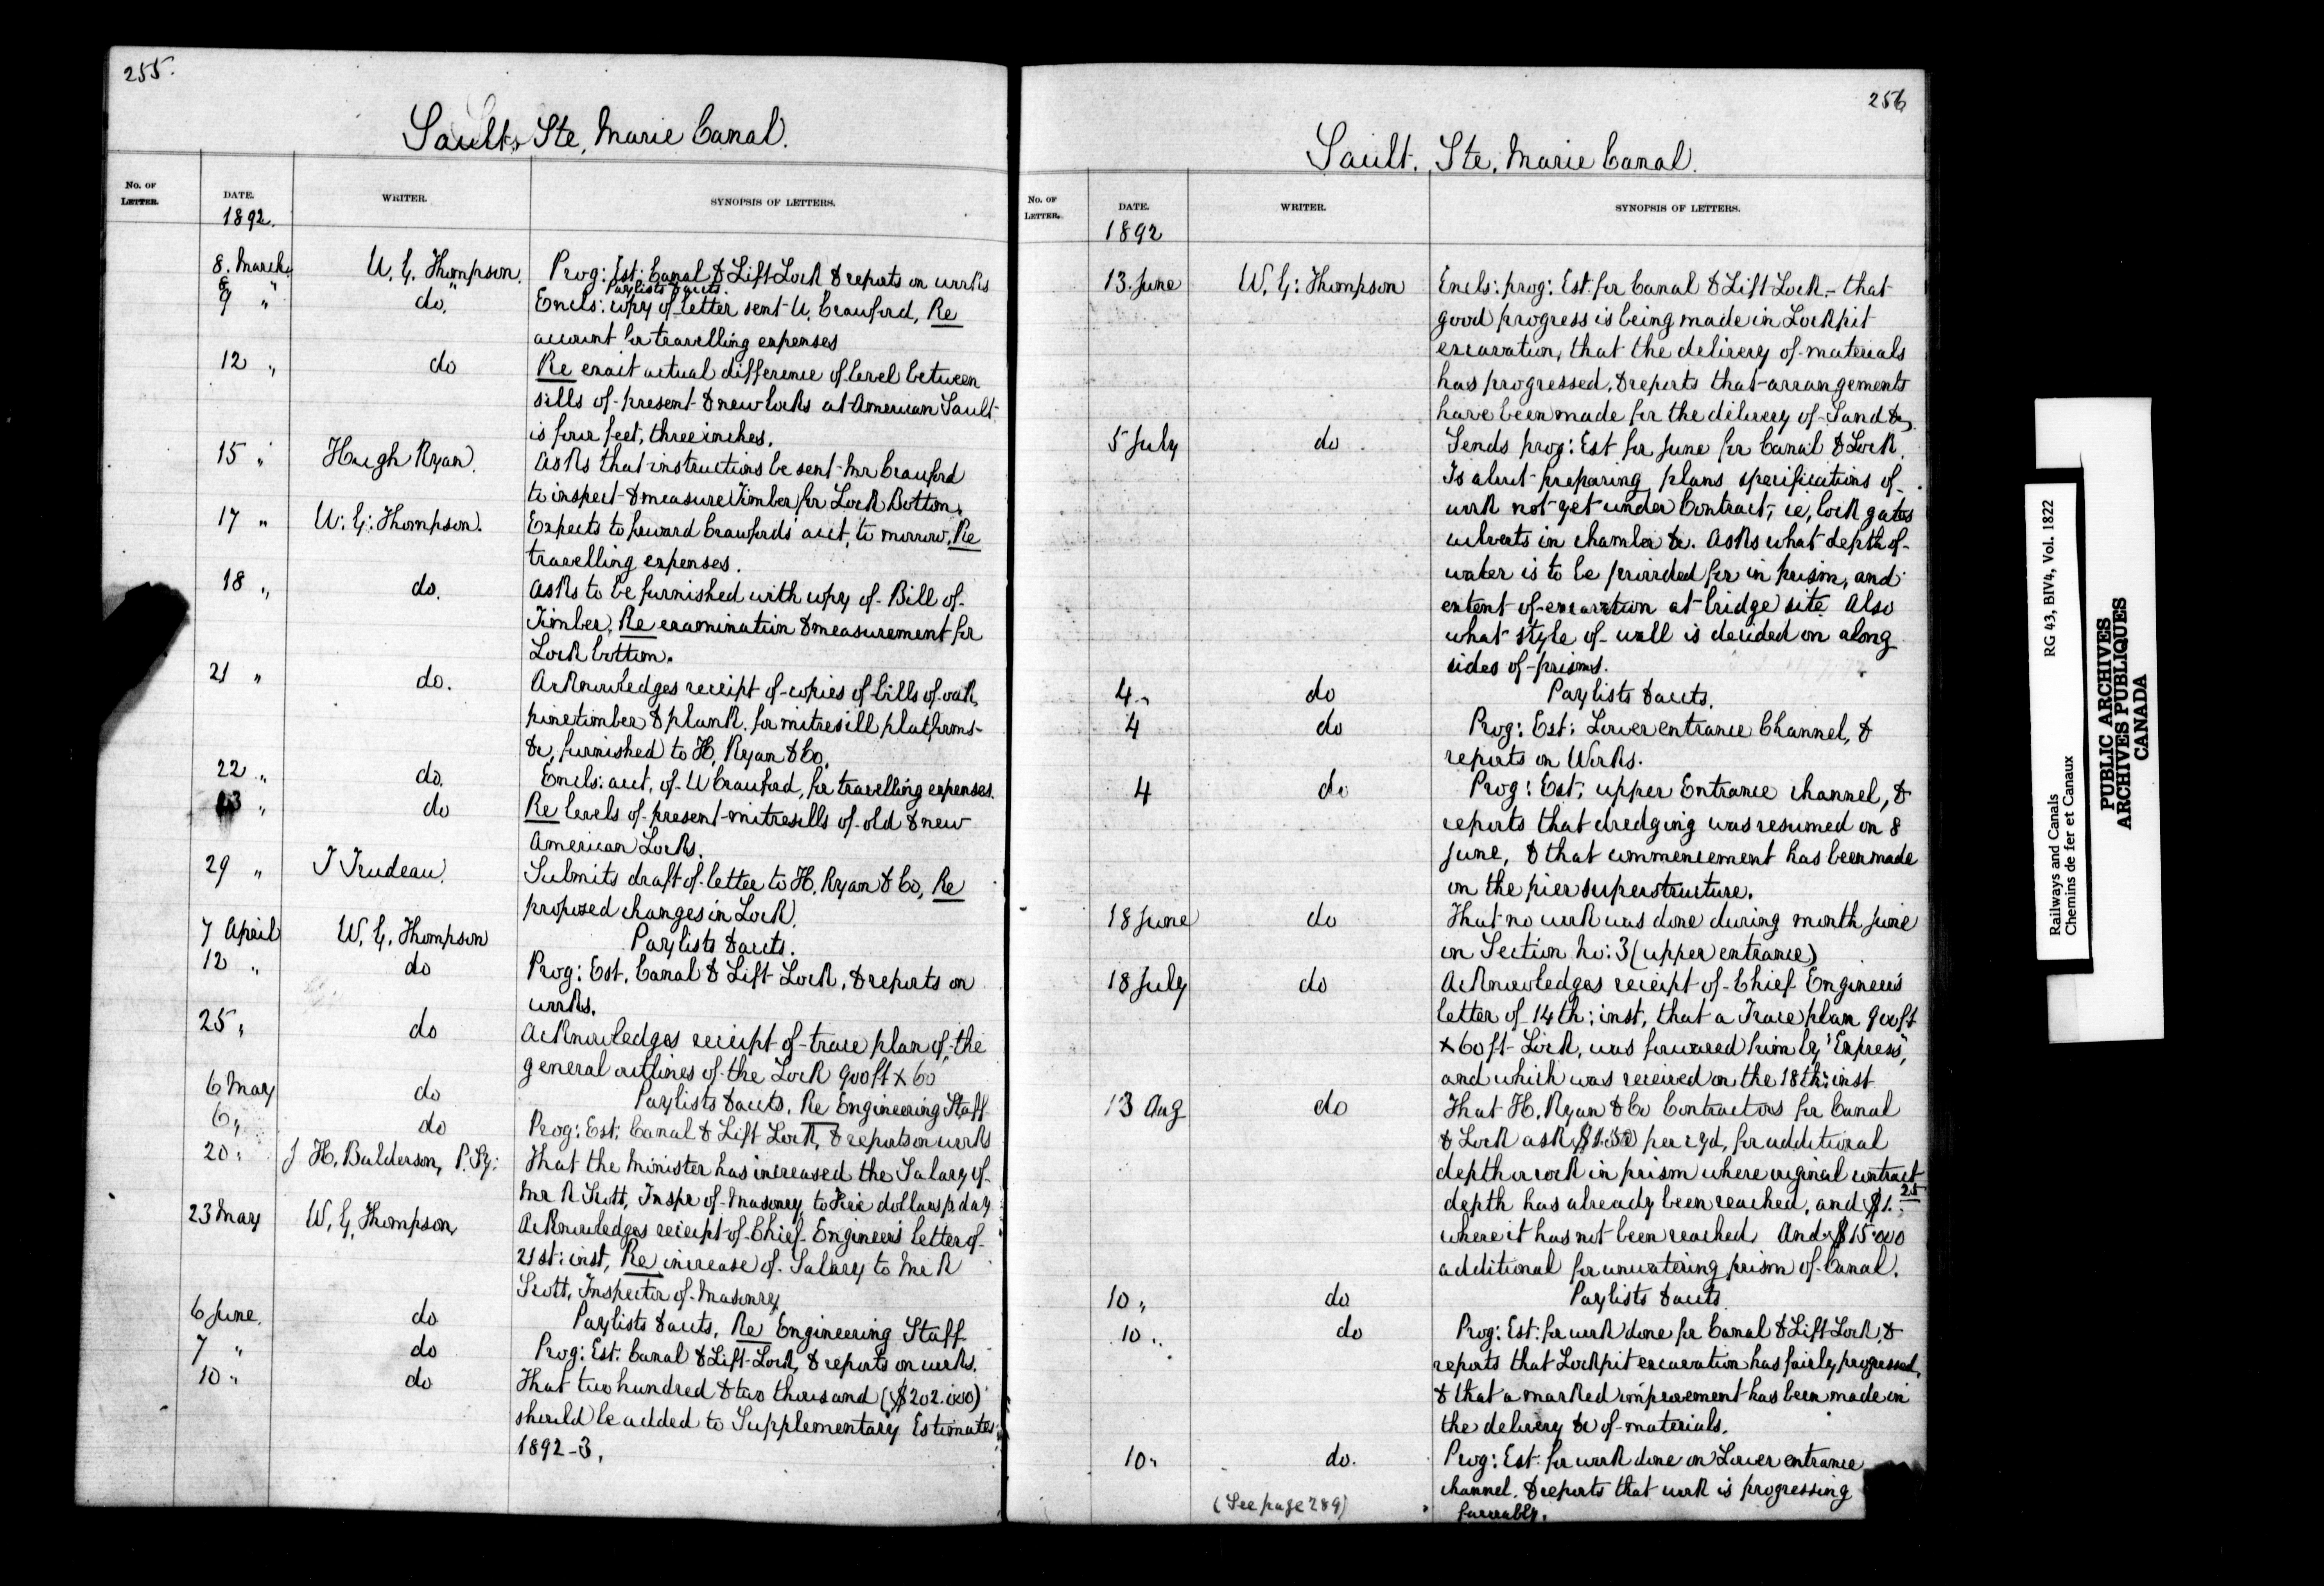 255.
Sault, Ste, Marie Canal.
No. of Letter. DATE. WRITER. SYNOPSIS OF LETTERS.
1892.
8. March W. G. Thompson. Prog: Est: Canal & Lift Lock & reports on works
8 " " Paylists & accts.
9 " do. Encls: copy of letter sent W. Crawford, Re
account for travelling expenses
12 " do Re exact actual difference of level between
sills of present & new locks at American Sault
is four feet, three inches.
15 " Hugh Ryan. Asks that instructions be sent Mr Crawford
to inspect & measure Timber for Lock Bottom.
17 " W. G. Thompson. Expects to forward Crawfords acct, to morrow, Re
travelling expenses.
18 " do. Asks to be furnished with copy of Bill of
Timber, Re examination & measurement for
Lock bottom.
21 " do. Acknowledges receipt of copies of bills of oak,
pine timber & plank for mitresill platforms
&c, furnished to H. Ryan & Co.
22 " do. Encls: acct. of W Crawford, for travelling expenses.
23 " do Re levels of present mitresills of old & new
American Locks.
29 " T Trudeau. Submits draft of letter to H. Ryan & Co, Re
proposed changes in Lock.
7 April W. G. Thompson Paylists & accts.
12 " do Prog: Est. Canal & Lift Lock, & reports on
works.
25 " do Acknowledges receipt of trace plan of the
general outlines of the Lock 900 ft x 60'
6 May do Paylists & accts. Re Engineering Staff
6 " do Prog: Est: Canal & Lift Lock, & reports on works
20 " J H. Balderson, P. Sy: That the Minister has increased the Salary of
Mr R Scott, Inspr of Masonry, to Five dollars p day
23 May W. G. Thompson, Acknowledges receipt of Chief Engineers letter of
21st: inst, Re increase of Salary to Mr R
Scott, Inspector of Masonry
6 June. do Paylists & accts, Re Engineering Staff
7 " do Prog: Est. Canal & Lift Lock, & reports on works.
10 " do That two hundred & two thousand ($202.000)
should be added to Supplementary Estimates
1892-3.
256
Sault. Ste. Marie Canal.
No. of Letter. DATE. WRITER. SYNOPSIS OF LETTERS.
1892
13. June W. G: Thompson Encls: prog: Est for Canal & Lift Lock. - that
good progress is being made in Lockpit
excavation, that the delivery of materials
has progressed, & reports that arrangements
have been made for the delivery of Sand &c,
5 July do Sends prog: Est for June for Canal & Lock.
Is about preparing plans specifications of
work not yet under Contract, ie, lock gates
culverts in chamber &c. Asks what depth of
water is to be provided for in prism, and
extent of excavation at bridge site Also
what style of wall is decided on along
sides of prisms.
4 " do Paylists & accts.
4 do Prog: Est: Lower entrance Channel, &
reports on Works.
4 do Prog: Est: upper Entrance channel, &
reports that dredging was resumed on 8
June, & that commencement has been made
on the pier superstructure.
18 June do That no work was done during month June
on Section No: 3 (upper entrance)
18 July do Acknowledges receipt of Chief Engineers
letter of 14th: inst, that a Trace plan 900 ft
x 60 ft Lock, was forwared him by "Express",
and which was received on the 18th: inst
13 Aug do That H. Ryan & Co Contractors for Canal
& Lock ask $1.50 per c yd, for additional
depth or rock in prism where original contract
depth has already been reached, and $1. 25
where it has not been reached And $15.000
additional for unwatering prism of Canal.
10 " do Paylists & accts
10 " do Prog: Est: for work done for Canal & Lift Lock, &
reports that Lockpit excavation has fairly progressed,
& that a marked improvement has been made in
the delivery &c of materials.
10 " do. Prog: Est: for work done on Lower entrance
channel. & reports that work is progressing
favorably.
(See page 289)
Railways and Canals RG 43, BIV4, Vol. 1822
Chemins de fer et Canaux
PUBLIC ARCHIVES
ARCHIVES PUBLIQUES
CANADA